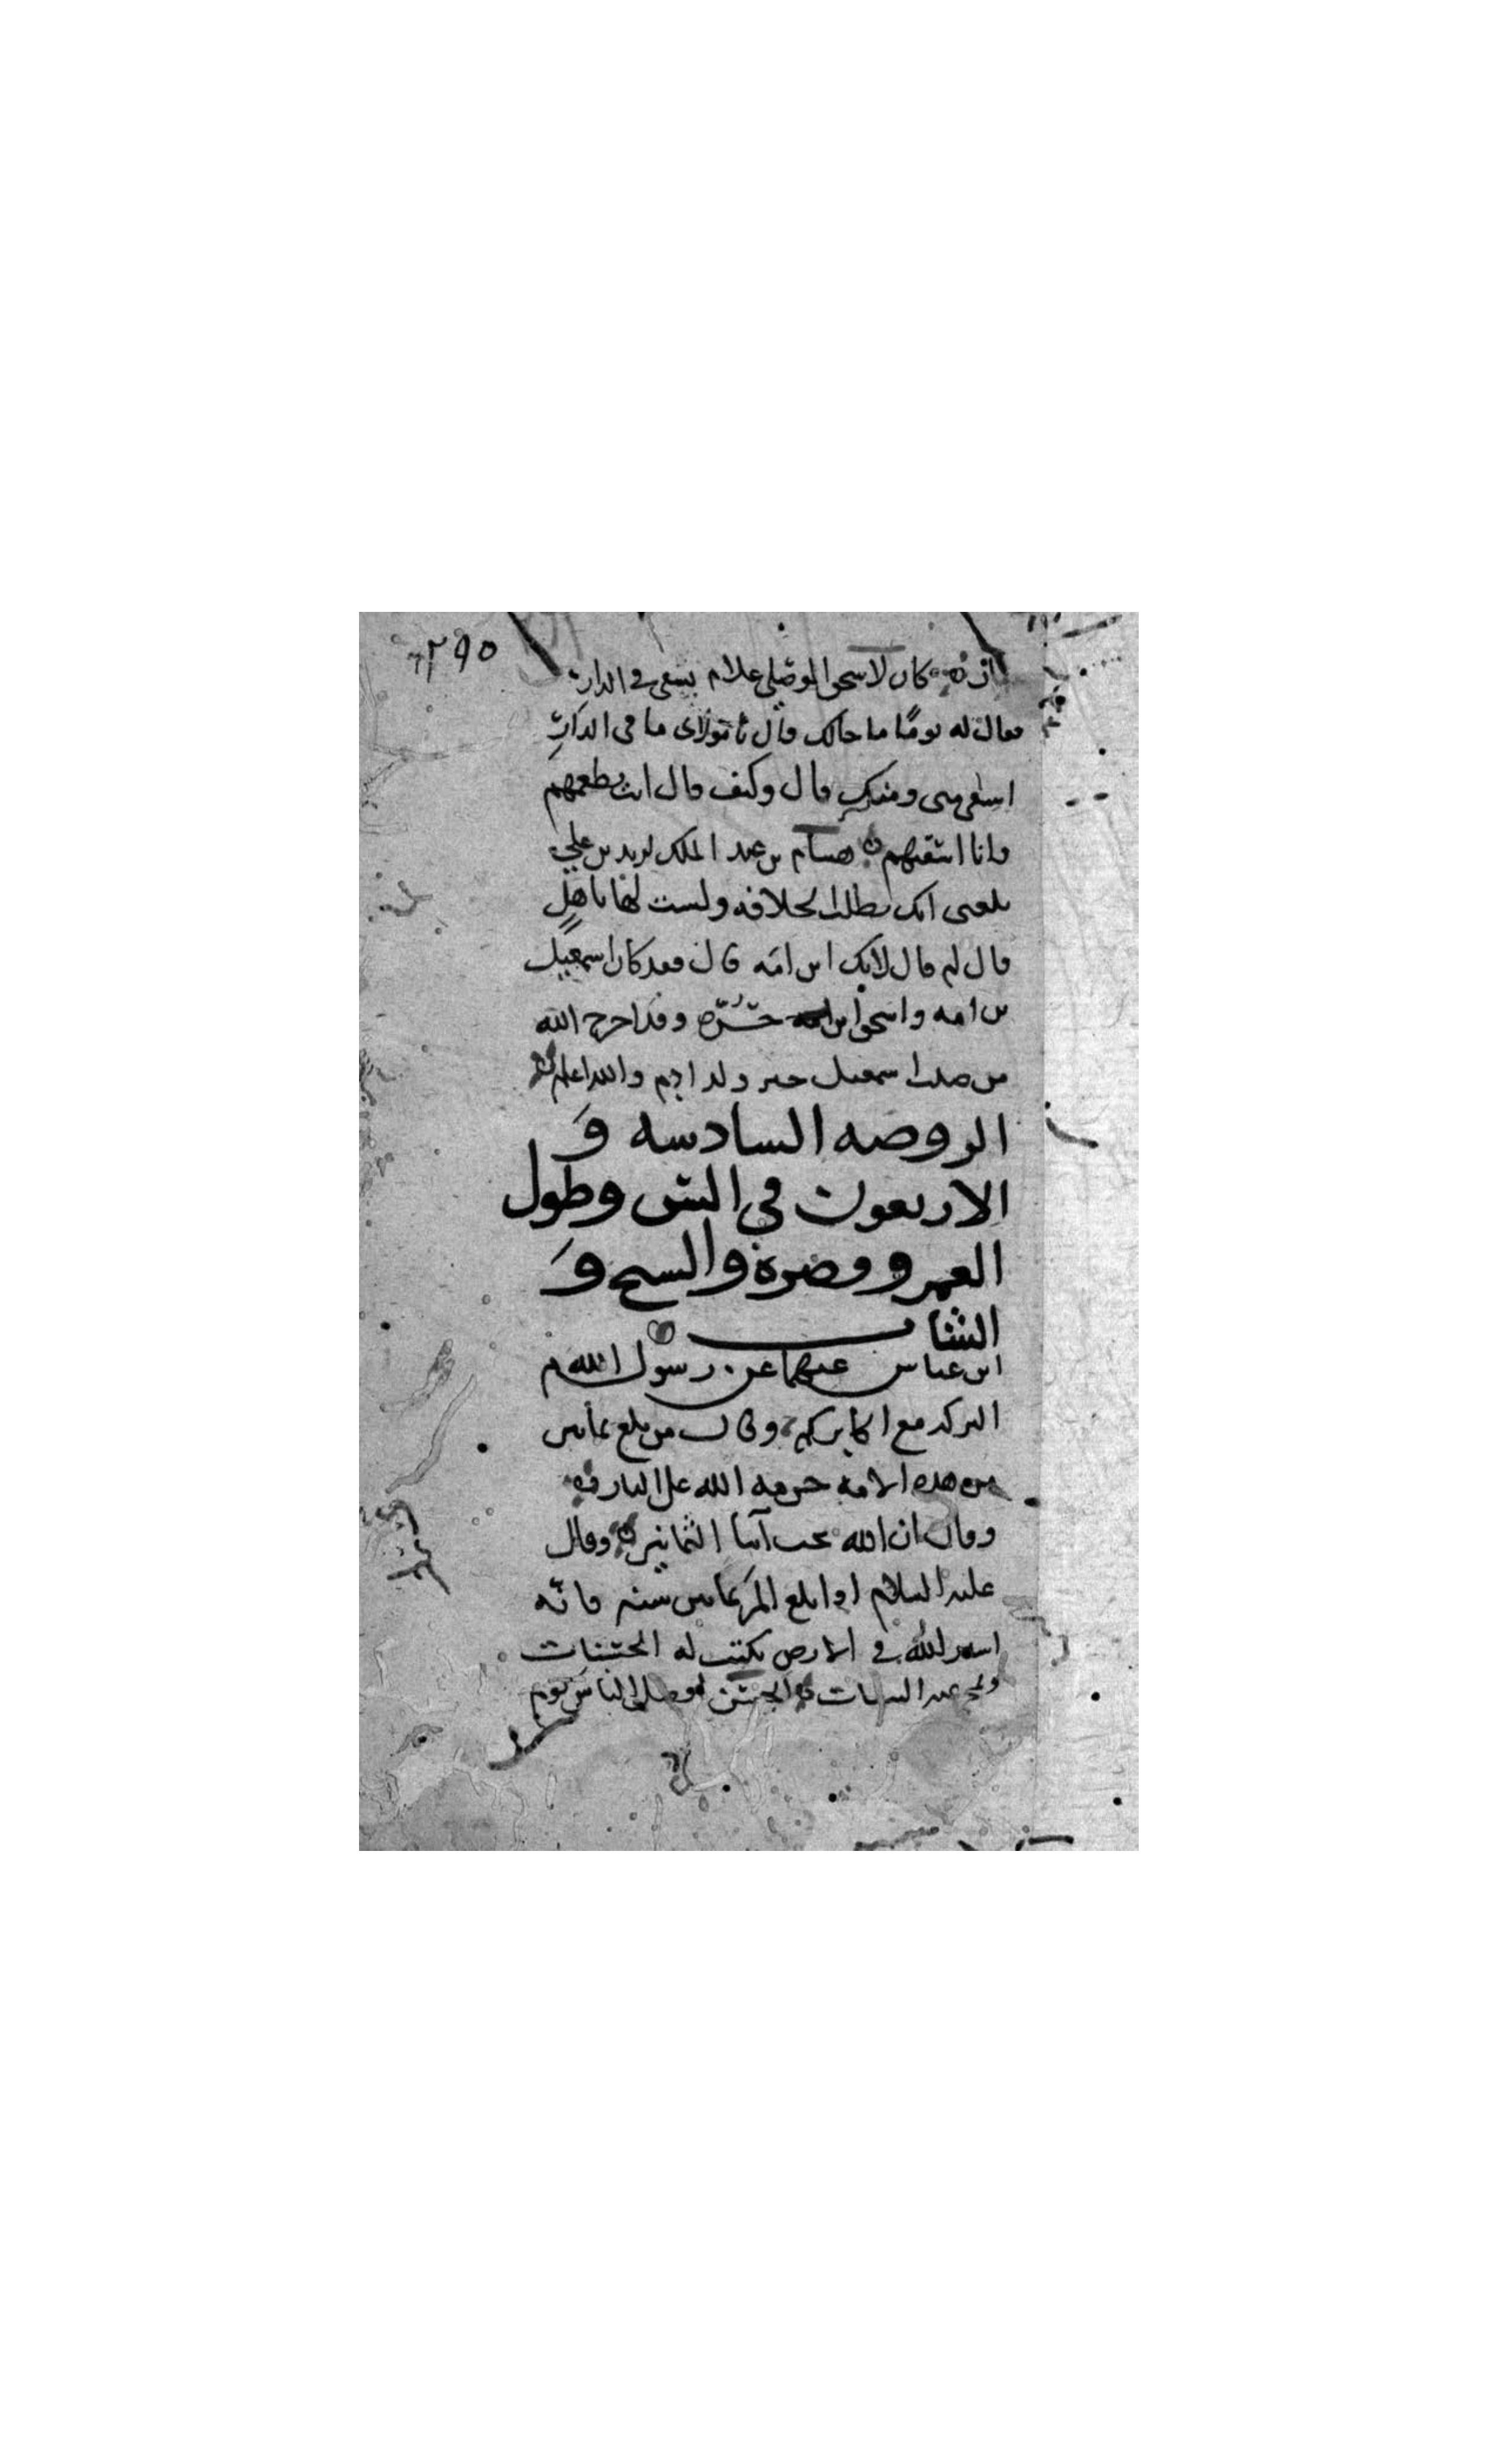 ٢٩٥
كان لاسحق الموصلي غلام يسقي في الدار
فقال له يوما ما حالك قال يا مولاي ما في الدار
اشقى مني ومنك قال وكيف قال انت تطعمهم
وانا اسقيهم هشام بن عبد الملك لزيد بن علي
بلغني انك تطلب الخلافه ولست لها باهل
قال لم قال لانك ابن امه قال فقد كان اسمعيل
بن امه واسحق ابن حره وقد اخرج الله
من صلب اسمعيل خير ولد ادم والله اعلم
الروضه السادسه و
الاربعون في السن وطول
العمر وقصره والشيخ و
الشاب
ابن عباس عنهما عن رسول الله م
البركه مع اكابركم وقال من بلغ ثمانين
من هذه الامه حرمه الله على النار
وقال ان الله يحب ابنا الثمانين وقال
عليه السلام اذا بلغ المرء ثمانين سنه فانه
اسير الله في الارض يكتب له الحسنات
ويمحي عنه السيات الحسن افضل الناس يوم